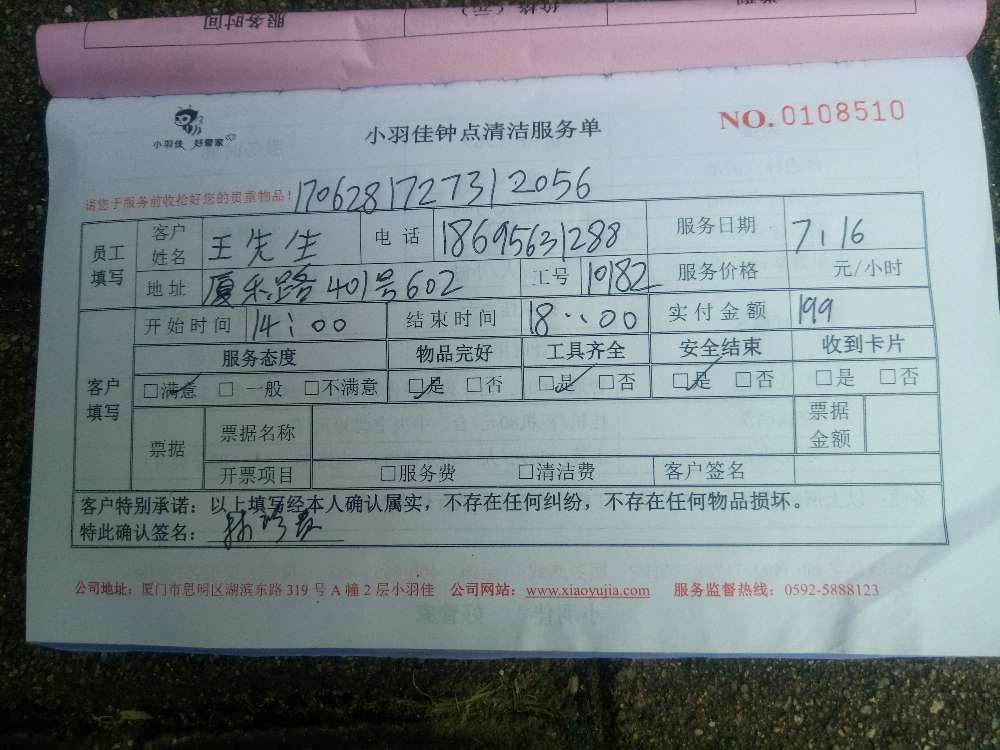 服务时间 价格(元)
小羽佳 好管家
小羽佳钟点清洁服务单
NO.0108510
请您于服务前收拾好您的贵重物品! 1706281727312056
员工填写 客户姓名 王先生 电话 18695631288 服务日期 7.16
地址 厦禾路401号602 工号 10182 服务价格 元/小时
客户填写 开始时间 14:00 结束时间 18:00 实付金额 199
服务态度 物品完好 工具齐全 安全结束 收到卡片
☑满意 □一般 □不满意 ☑是 □否 ☑是 □否 ☑是 □否 □是 □否
票据 票据名称 票据金额
开票项目 □服务费 □清洁费 客户签名
客户特别承诺:以上填写经本人确认属实,不存在任何纠纷,不存在任何物品损坏。
特此确认签名:
公司地址:厦门市思明区湖滨东路 319 号 A 幢 2 层小羽佳 公司网站:www.xiaoyujia.com 服务监督热线:0592-5888123